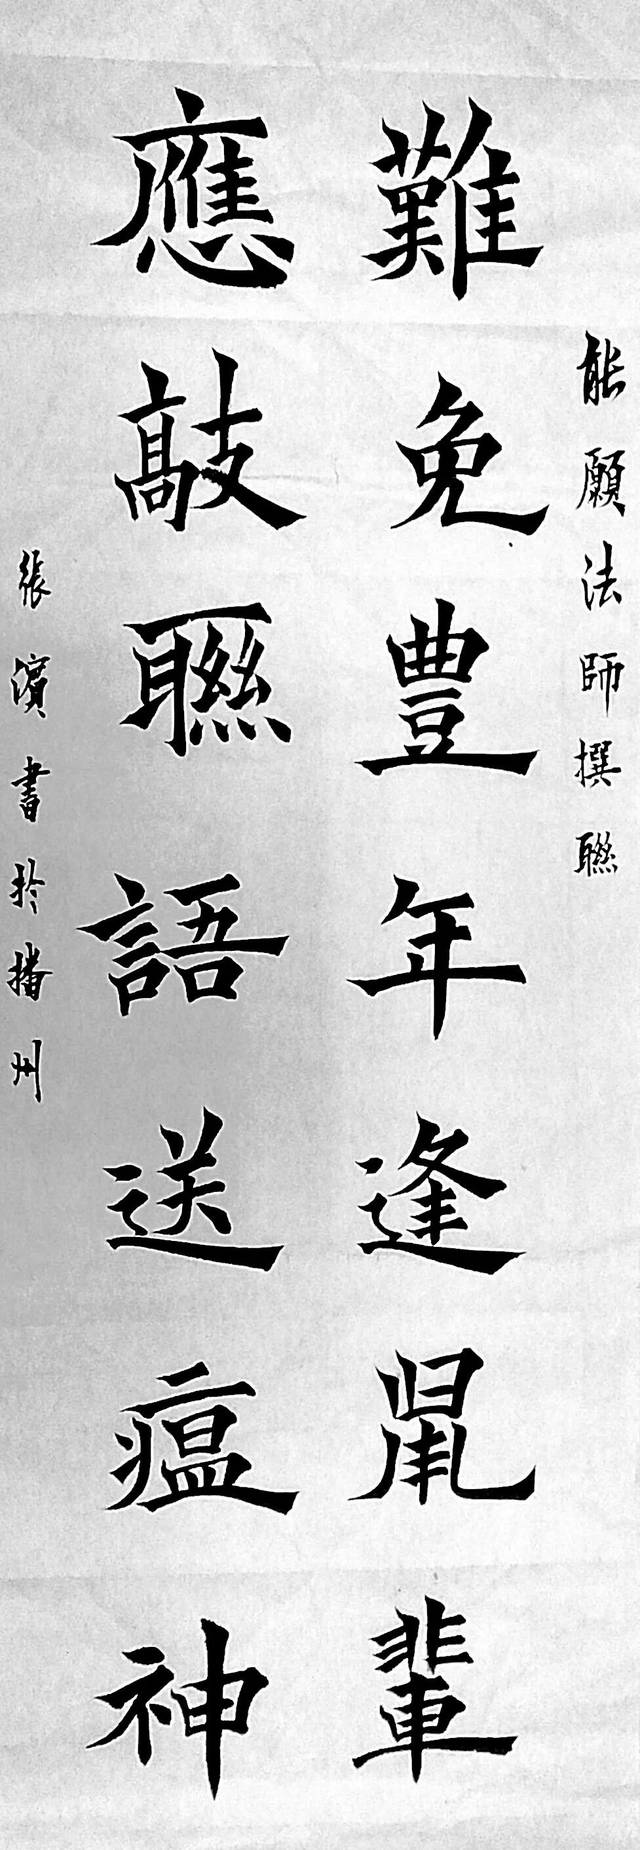 能願法師撰聯
難免豐年逢鼠輩
應敲聯語送瘟神
張濱書於播州